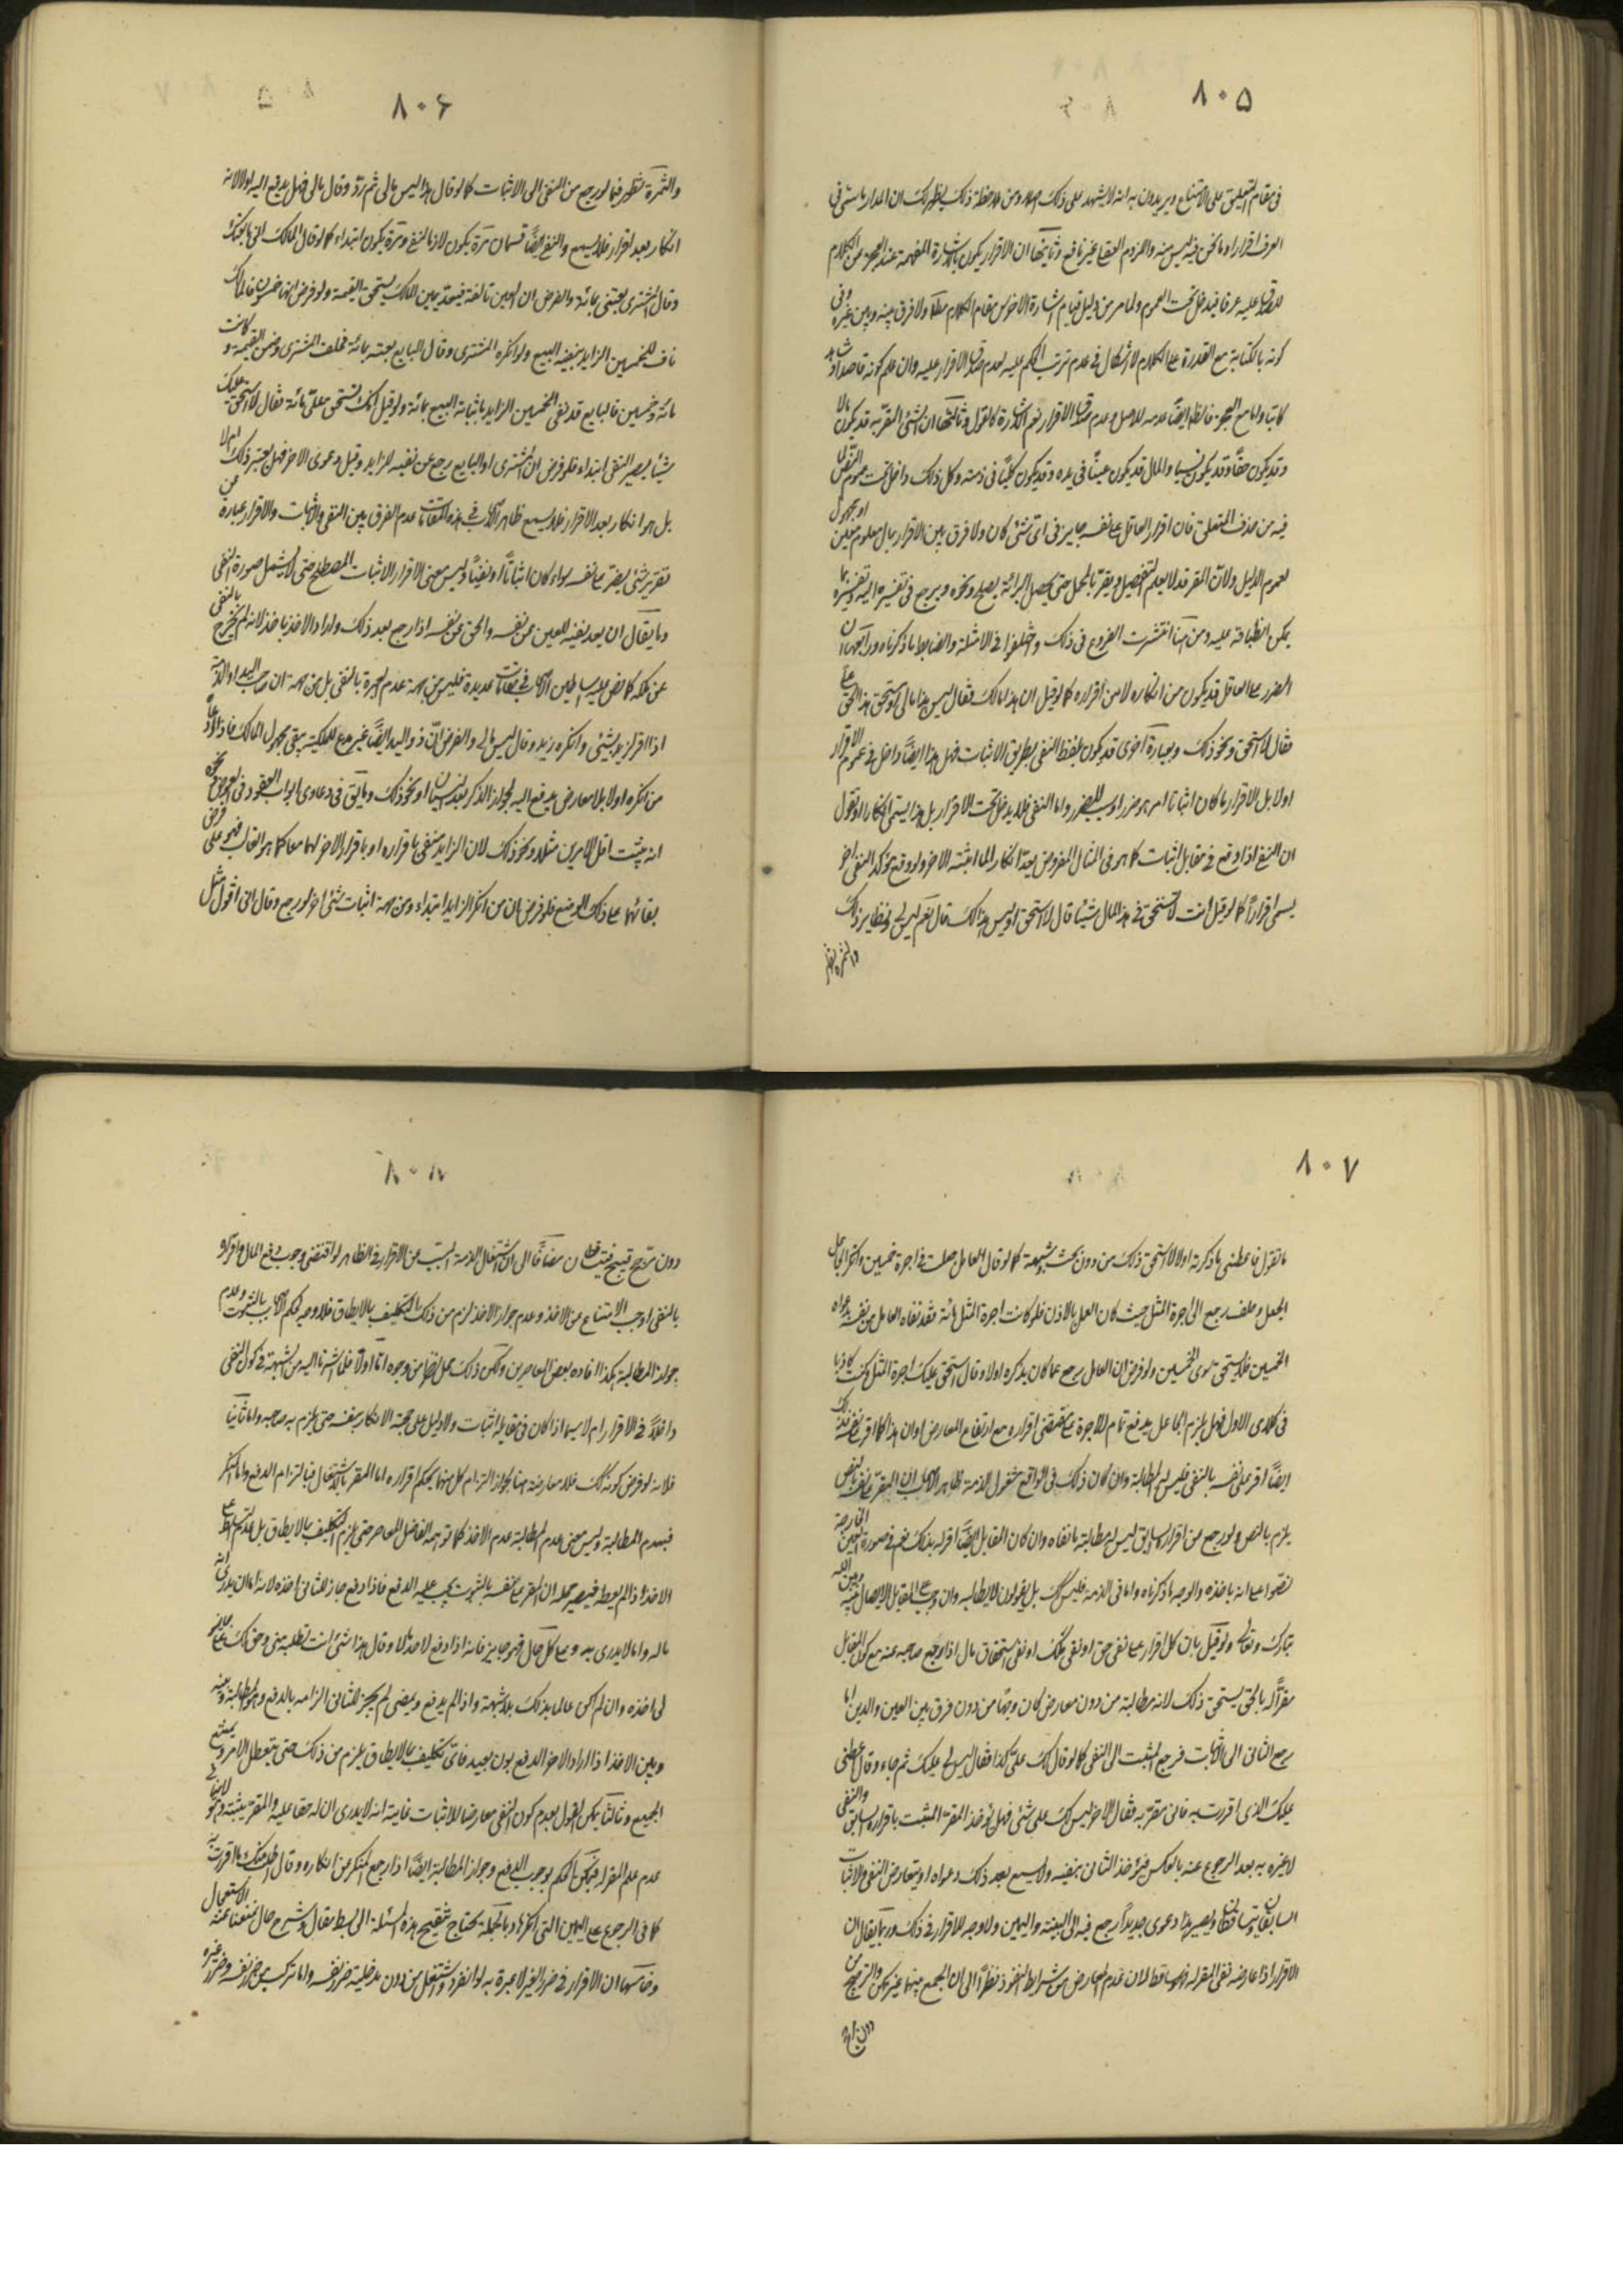 ۸۰۵
في مقام التعليق على الامتناع ويريدون به انه لا يشهد على ذلك اصلا ومن ملاحظة ذلك يظهر لك ان المدار ما يسمى في
العرف اقرارا وما نحن فيه ليس منه واللزوم العقلي غير نافع وثانيها ان الاقرار يكون بالاشارة المفهمة عند العجز من الكلام
لصدقها عليه عرفا فيدخل تحت العموم ولما مر من دليل قيام اشارة الاخرس مقام الكلام مطلقا ولا فرق بينه وبين غيره وفي
كونه بالكتابة مع القدرة على الكلام لا اشكال في عدم ترتب الحكم عليه لعدم صدق الاقرار عليه وان علم كونه قاصدا وشاهد
كاتبا واما مع العجز فالظاهر ايضا عدمه للاصل وعدم صدق الاقرار نعم الاشارة كالقول وثالثها ان الشئ المقر به قد يكون مالا
وقد يكون حقا وقد يكون نسبا والمال قد يكون عينا في يده وقد يكون كليا في ذمته وكل ذلك داخل تحت عموم النص لما
فيه من حذف المتعلق فان اقرار العاقل على نفسه جايز في اي شئ كان ولا فرق بين الاقرار بمال معلوم معين او مجهول
لعموم الدليل ولان المقر قد لا يعلم التفصيل ويقر بالمجمل حتى يحصل البرائة بصلح ونحوه ويرجع في تفسيره اليه وتفسيره بما
يمكن انطباقه عليه ومن هنا انتشرت الفروع في ذلك واختلفوا في الامثلة والضابط ما ذكرناه ورابعها ان
الضرر على العاقل قد يكون من انكاره لا من اقراره كما لو قيل ان هذا مالك فقال ليس هذا مالي او تستحق هذا الحق علي
فقال لا استحق ونحو ذلك وبعبارة اخرى قد يكون بلفظ النفي لا بطريق الاثبات فهل هذا ايضا داخل في عموم الاقرار
اولا بل الاقرار ما كان اثباتا لامر هو ضرر او سبب للضرر واما النفي فلا يدخل تحت الاقرار بل هذا يسمى انكارا او نقول
ان النفي اذا وقع في مقابل اثبات كما هو في المثال المفروض يعد انكارا لما اثبته الاخر ولو وقع مؤكدا لنفي اخر
يسمى اقرارا كما لو قيل انت لا تستحق في هذا المال شيئا قال لا استحق او ليس هذا لك قال نعم ليس لي ونظاير ذلك
والثمرة تظهر
۸۰۶
والثمرة تظهر فيما لو رجع من النفي الى الاثبات كما لو قال هذا ليس مالي ثم رد وقال مالي فهل يدفع اليه اولا لانه
انكار بعد اقرار فلا يسمع والنفي ايضا قسمان مرة يكون لازما للنفي ومرة يكون ابتداء كما لو قال المالك اني ما بعتك
وقال المشتري بعتني بمائة والفرض ان العين تالفة فيحد بيمين المالك يستحق القيمة ولو فرض انها خمسون فالمالك
ناف للخمسين الزايد بنفيه البيع ولو انكره المشتري وقال البايع بعته بمائة فحلف المشتري وضمن القيمة وكانت
مائة وخمسين فالبايع قد نفى الخمسين الزايد باثباته البيع بمائة ولو قيل انك تستحق علي مائة فقال لا استحق عليك
شيئا يصير النفي ابتداء فلو فرض ان المشتري او البايع رجع عن نفيه الزايد وقبل دعوى الاخر فهل يعتبر ذلك ام لا
بل هو انكار بعد الاقرار فلا يسمع ظاهر الاصحاب في هذه المقامات عدم الفرق بين النفي والاثبات والاقرار عبارة عن
تقرير شئ يضر على نفسه سواء كان اثباتا او نفيا وليس معنى الاقرار الاثبات المصطلح حتى لا يشمل صورة النفي
وما يقال ان يعد نفيه للعين عن نفسه والحق عن نفسه اذا رجع بعد ذلك واراد الاخذ ياخذ لانه لم يخرج بالنفي
عن ملكه كما نص عليه اساطين الاصحاب في مقامات عديدة فليس من جهة عدم العبرة بالنفي بل من جهة ان صاحب اليد او الذمة
اذا اقر لزيد بشئ وانكره زيد وقال ليس مالي والفرض ان ذو اليد ايضا غير مدع للملكية يبقى مجهول المالك فاذا ادعاه
من انكره اولا بلا معارض يدفع اليه لجواز الذكر بعد النسيان او نحو ذلك وما يتفق في دعاوى ابواب العقود في العوض ونحوه
انه يثبت اقل الامرين مثلا ونحو ذلك لان الزايد منفي باقراره او باقرار الاخر لهما معا كما هو الغالب فهو على فرض
بقائهما على ذلك الوضع فلو فرض ان من انكر الزايد ابتداء ومن جهة اثبات شئ اخر لو رجع وقال اني اقول مثل
۸۰۷
ما تقول فاعطني ما ذكرته اولا لاستحق ذلك من دون بحث وشبهة كما لو قال العامل جعلت في اجرة خمسين وانكر الجاعل
الجعل وحلف رجع الى اجرة المثل حيث كان العمل بالاذن فلو كانت اجرة المثل مائة فقد نفاه العامل من نفسه بدعواه
الخمسين فلا يستحق سوى الخمسين ولو فرض ان العامل رجع عما كان يذكره اولا وقال استحق عليك اجرة المثل وكنت كاذبا
في كلامي الاول فهل يلزم الجاعل بدفع تمام الاجرة على مقتضى اقراره مع ارتفاع المعارض او ان هذا كما اقر على نفسه بذلك
ايضا اقر على نفسه بالنفي فليس له المطالبة وان كان ذلك في الواقع مشغول الذمة ظاهر الاصحاب ان المقر على نفسه بالنفي
يلزم بالنص ولو رجع من اقراره السابق ليس له مطالبة ما نفاه وان كان المقابل ايضا اقر له بذلك نعم في صورة العين الخارجة
نصوا على انه ياخذه والوجه ما ذكرناه واما في الذمة فليس كك بل يقولون لا يطالبه وان وجب على المقابل الايصال بينه وبين الله
تبارك وتعالى ولو قيل بان كل اقرار على نفي حق او نفي ملك او نفي استحقاق مال اذا رجع صاحبه عنه مع كون المقابل
مقرا له بالحق يستحق ذلك لانه مطالبة من دون معارض كان وجها من دون فرق بين العين والدين اما
رجع الثاني الى الاثبات فرجع المثبت الى النفي كما لو قال لك علي كذا فقال ليس لي عليك ثم جاء وقال اعطني
عليك الذي اقررت به فاني مقر به فقال الاخر ليس لك علي شئ فهل يؤخذ المقر المثبت باقراره السابق والنفي
لا عبرة به بعد الرجوع عنه بالعكس فيؤخذ الثاني بنفيه ولا يسمع بعد ذلك دعواه او يتعارض النفي والاثبات
السابقان ويتساقطان ويصير هذا دعوى جديدا يرجع فيه الى البينة واليمين ولا وجه للاقرار في ذلك وربما يقال ان
الاقرار اذا عارضه نفي المقر له فهو ساقط لان عدم المعارض من شرايط النفوذ نظرا الى ان الجمع بينهما غير ممكن والترجيح من
دون مرجح
۸۰۸
دون مرجح قبيح فيتساقطان مضافا الى ان اشتغال الذمة المسبب من الاقرار في الظاهر لو اقتضى وجوب دفع المال واقراره
بالنفي اوجب الامتناع من الاخذ وعدم جواز الاخذ لزم من ذلك التكليف بما لا يطاق فلا وجه لحكم الاصحاب بالثبوت وعدم
جواز المطالبة هكذا افاده بعض المعاصرين ولكن ذلك محل نظر من وجوه اما اولا فلما اشرنا اليه من الشبهة في كون النفي
داخلا في الاقرار ام لا سيما اذا كان في مقابله اثبات ولا دليل على حجية الانكار بنفسه حتى يلزم به صاحبه واما ثانيا
فلانه لو فرض كونه كك فلا معارضة هنا لجواز التزام كل منهما بحكم اقراره اما المقر بالاشتغال فبالتزام الدفع واما المنكر
فبعدم المطالبة وليس معنى عدم المطالبة عدم الاخذ كما توهمه الفاضل المعاصر حتى يلزم التكليف بما لا يطاق بل
الاخذ اذا لم يعطه فيصير حاصله ان المقر على نفسه بالثبوت يجب عليه الدفع فاذا دفع جاز للثاني اخذه لانه اما ان يدري انه
ماله واما لا يدري به وعلى كل حال فهو جايز فانه اذا دفع لاحد مالا وقال هذا شئ انت تطلبه مني وحق لك علي جايز
له اخذه وان لم يكن عالما بذلك بلا شبهة واذا لم يدفع وعصى لم يجز للثاني الزامه بالدفع والمطالبة وبينه
وبين الاخذ اذا اراد الاخر الدفع بون بعيد فاي تكليف بما لا يطاق يلزم من ذلك حتى يتعطل الامر ويمتنع
الجمع وثالثا يمكن القول بعدم كون النفي معارضا للاثبات غايته انه لا يدري ان له حقا عليه والمقر يثبته وهو لا ينافي
عدم علم المقر له فيمكن الحكم بوجوب الدفع وجواز المطالبة ايضا اذا رجع المنكر من انكاره وقال اطلب منك ما اقررت به
كما في الرجوع على اليمين التي انكرها وبالجملة يحتاج تنقيح هذه المسئلة الى بسط مقال وشرح حال يمنعنا عنه الاستعجال
وخامسها ان الاقرار في ضرر الغير لا عبرة به لو انفرد واشتمل من دون مدخلية ضرر نفسه واما ما تركب من ضرر نفسه وضرر غيره